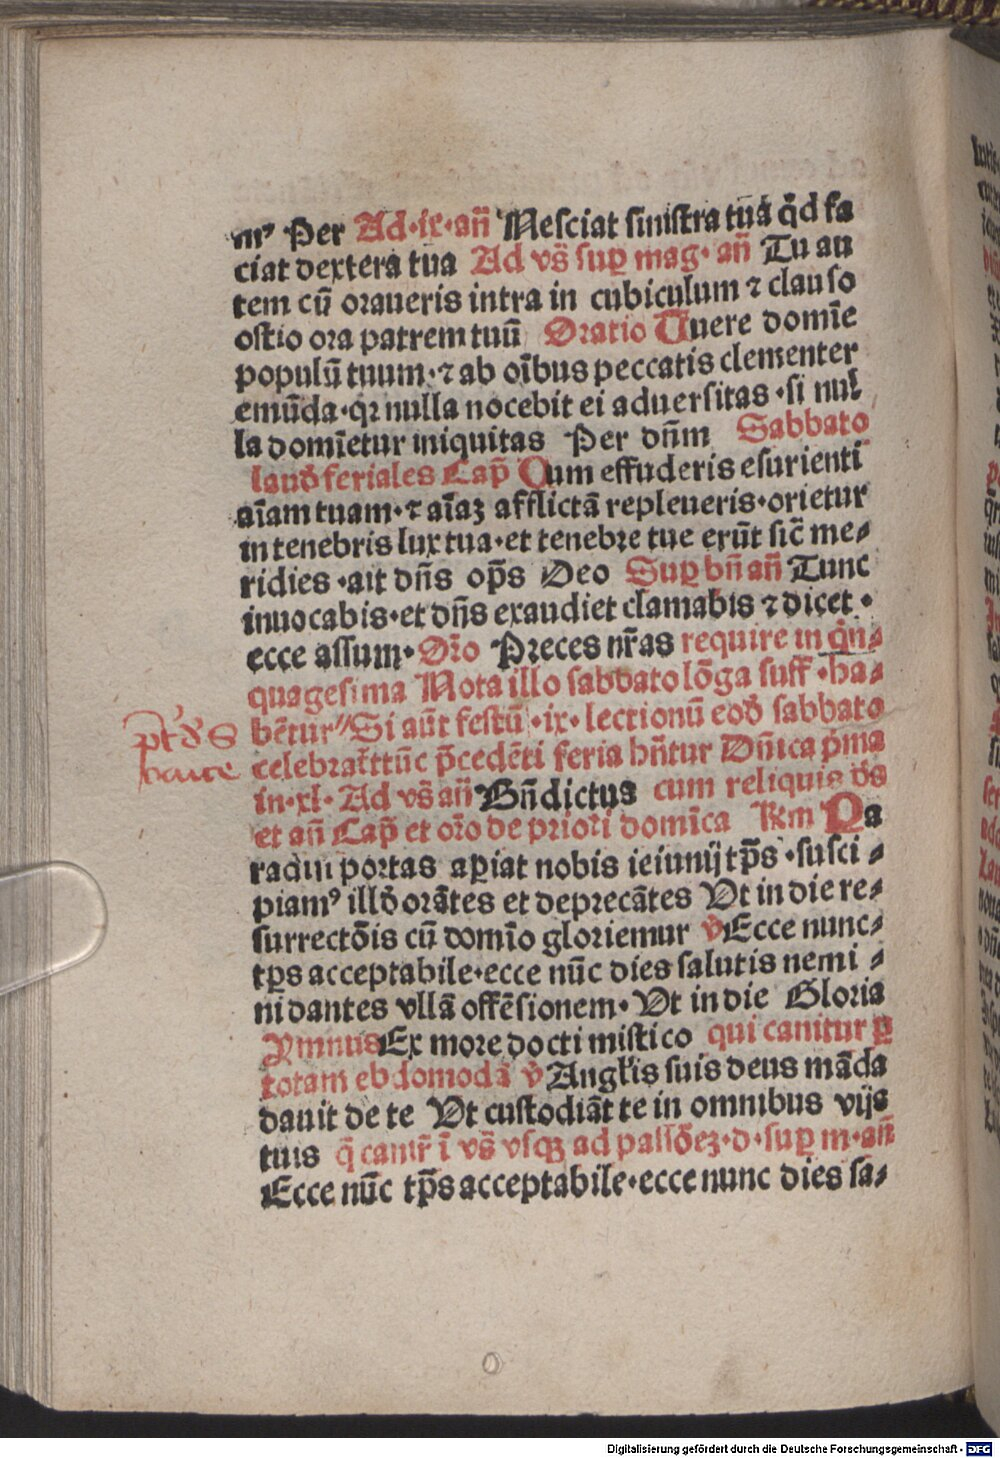 mꝰ Per Ad·ix·an̄ Nesciat sinistra tua q̄d fa
ciat dextera tua Ad vs̄ suꝑ mag· an̄ Tu au
tem cū oraueris intra in cubiculum ⁊ clauso
ostio ora patrem tuū Oratio Tuere domīe
populū tuum·⁊ ab oībus peccatis clementer
emūda·qꝛ nulla nocebit ei aduersitas ·si nul
la domīetur iniquitas Per dn̄m Sabbato
laud̄ feriales Cap̄ Cum effuderis esurienti
aīam tuam·⁊ aīaꝫ afflictā repleueris·orietur
in tenebris lux tua·et tenebre tue erūt sic̄ me⸗
ridies ·ait dn̄s op̄s Deo Suꝑ bn̄ an̄ Tunc
inuocabis·et dn̄s exaudiet clamabis ⁊ dicet ·
ecce assum· Or̄o Preces nr̄as require in q̄n⸗
quagesima Nota illo sabbato lōga suff̄ ·ha⸗
bētur Si aūt festū ·ix· lectionū eod̄ sabbato
celebrat̄ tūc p̄cedēti feria hn̄tur Dn̄ica p̄ma
in·xl· Ad vs̄ an̄ Bn̄dictus cum reliquis
et an̄ Cap̄ et or̄o de priori domīca Rm Pa
radisi portas aꝑiat nobis ieiunij tp̄s ·susci⸗
piamꝰ illd̄ orātes et deprecātes Vt in die re⸗
surrectōis cū domīo gloriemur v̄ Ecce nunc⸗
tp̄s acceptabile·ecce nūc dies salutis nemi⸗
ni dantes vllā offēsionem· Vt in die Gloria
Ymnus Ex more docti mistico qui canitur ꝑ
totam ebdomodā v̄ Angl̄is suis deus māda
dauit de te Vt custodiāt te in omnibus vijs
tuis q̄ canit̄ ī vs̄ vsqꝫ ad d· suꝑ m·an̄
Ecce nūc tp̄s acceptabile·ecce nunc dies sa⸗
Digitalisierung gefördert durch die Deutsche Forschungsgemeinschaft · DFG